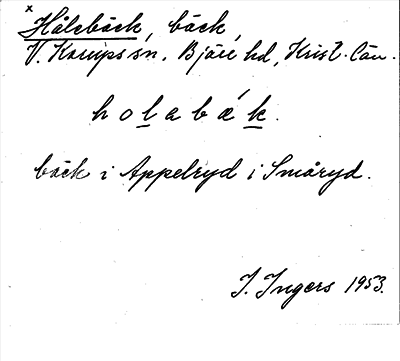 x
Hålebäck, bäck,
V. Karups sn. Bjäre hd, Krist. län.
holabák.
bäck i Appelryd i Småryd.
I. Ingers 1953.